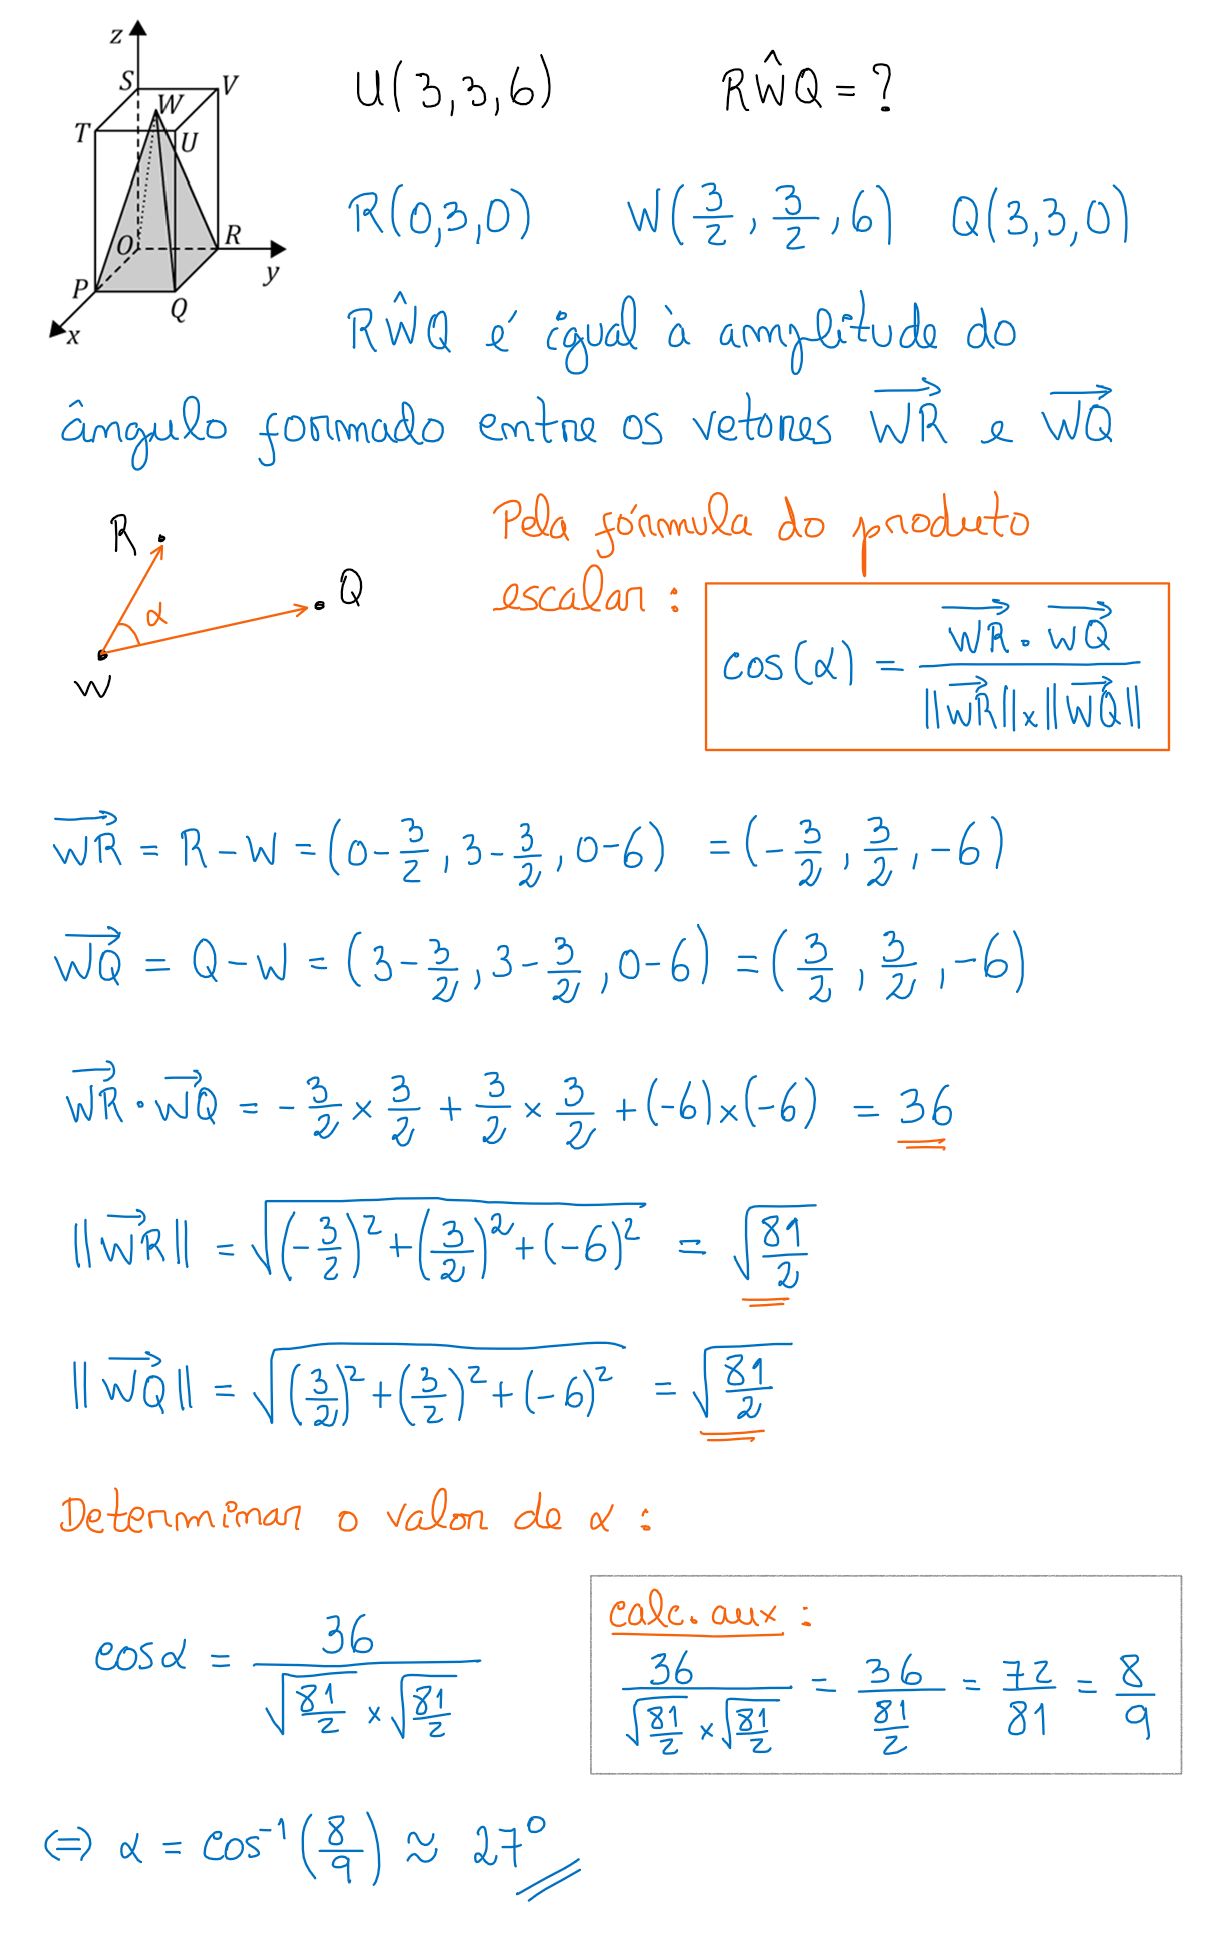 z
S V
W
T U
O R
y
P Q
x
U(3,3,6) RŴQ = ?
R(0,3,0) W(3/2, 3/2, 6) Q(3,3,0)
RŴQ é igual à amplitude do
ângulo formado entre os vetores →WR e →WQ
R
Q
α
W
Pela fórmula do produto
escalar:
cos(α) = (→WR · →WQ) / (||→WR|| × ||→WQ||)
→WR = R - W = (0 - 3/2, 3 - 3/2, 0 - 6) = (-3/2, 3/2, -6)
→WQ = Q - W = (3 - 3/2, 3 - 3/2, 0 - 6) = (3/2, 3/2, -6)
→WR · →WQ = -3/2 × 3/2 + 3/2 × 3/2 + (-6) × (-6) = 36
||→WR|| = √((-3/2)² + (3/2)² + (-6)²) = √(81/2)
||→WQ|| = √((3/2)² + (3/2)² + (-6)²) = √(81/2)
Determinar o valor de α:
cosα = 36 / (√(81/2) × √(81/2))
calc. aux:
36 / (√(81/2) × √(81/2)) = 36 / (81/2) = 72/81 = 8/9
⇔ α = cos⁻¹(8/9) ≈ 27°